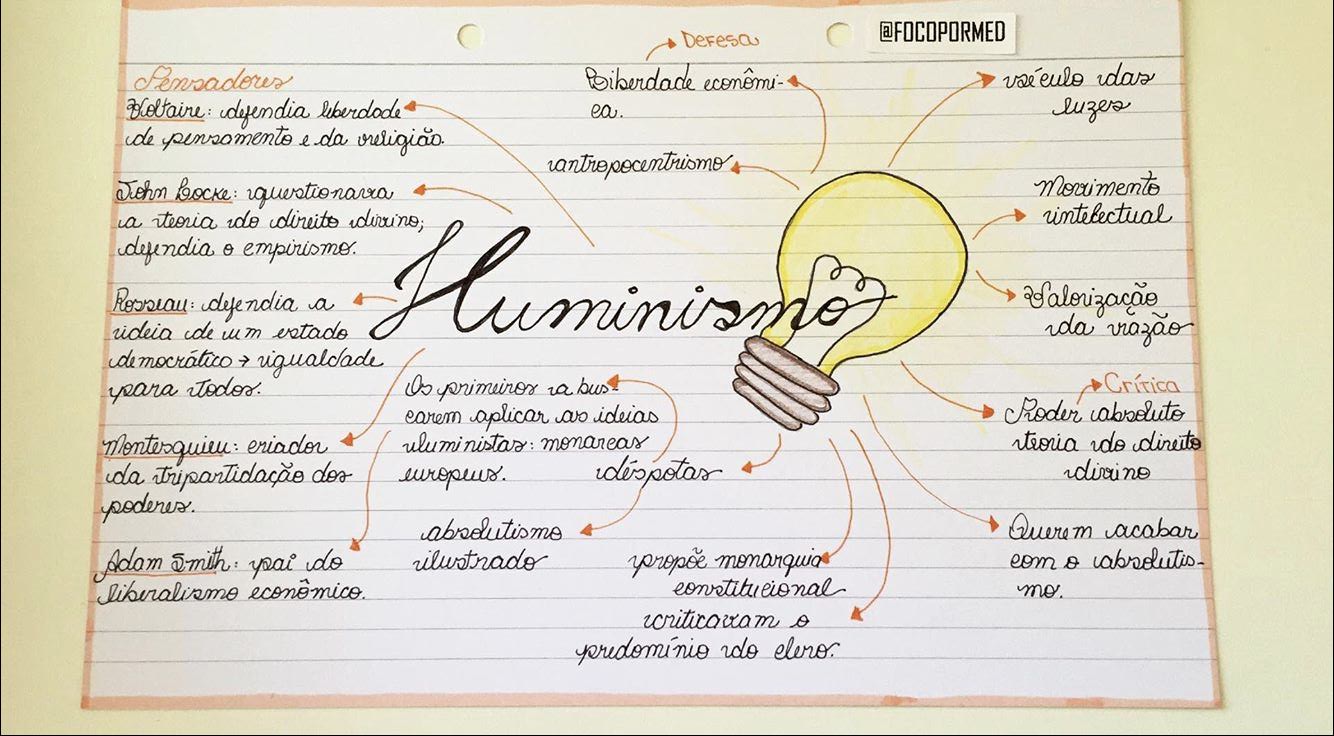 @FOCOPORMED
Defesa
Liberdade econômi-
ca.
antropocentrismo
século das
luzes
Movimento
intelectual
Valorização
da razão
Crítica
Poder absoluto
teoria do direito
divino
Querem acabar
com o absolutis-
mo.
Pensadores
Voltaire: defendia liberdade
de pensamento e da religião.
John Locke: questionava
a teoria do direito divino;
defendia o empirismo.
Rosseau: defendia a
ideia de um estado
democrático → igualdade
para todos.
Montesquieu: criador
da tripartidação dos
poderes.
Adam Smith: pai do
liberalismo econômico.
Iluminismo
Os primeiros a bus-
carem aplicar as ideias
iluministas: monarcas
europeus.
déspotas
absolutismo
ilustrado
propõe monarquia
constitucional
criticavam o
predomínio do clero.